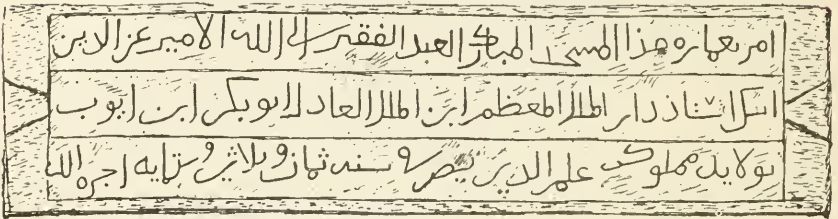 امر بعماره هذا المسجد المبارك العبد الفقير الى الله الامير عز الدين
ايبك استاذ دار الملك المعظم ابن الملك العادل ابو بكر ابن ايوب
بولايه مملوكه علم الدين قيصر في سنه ثمان وثلاثين وستمايه اجره الله